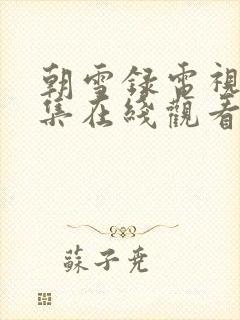 朝雪録電視
集在綫觀看
蘇子堯